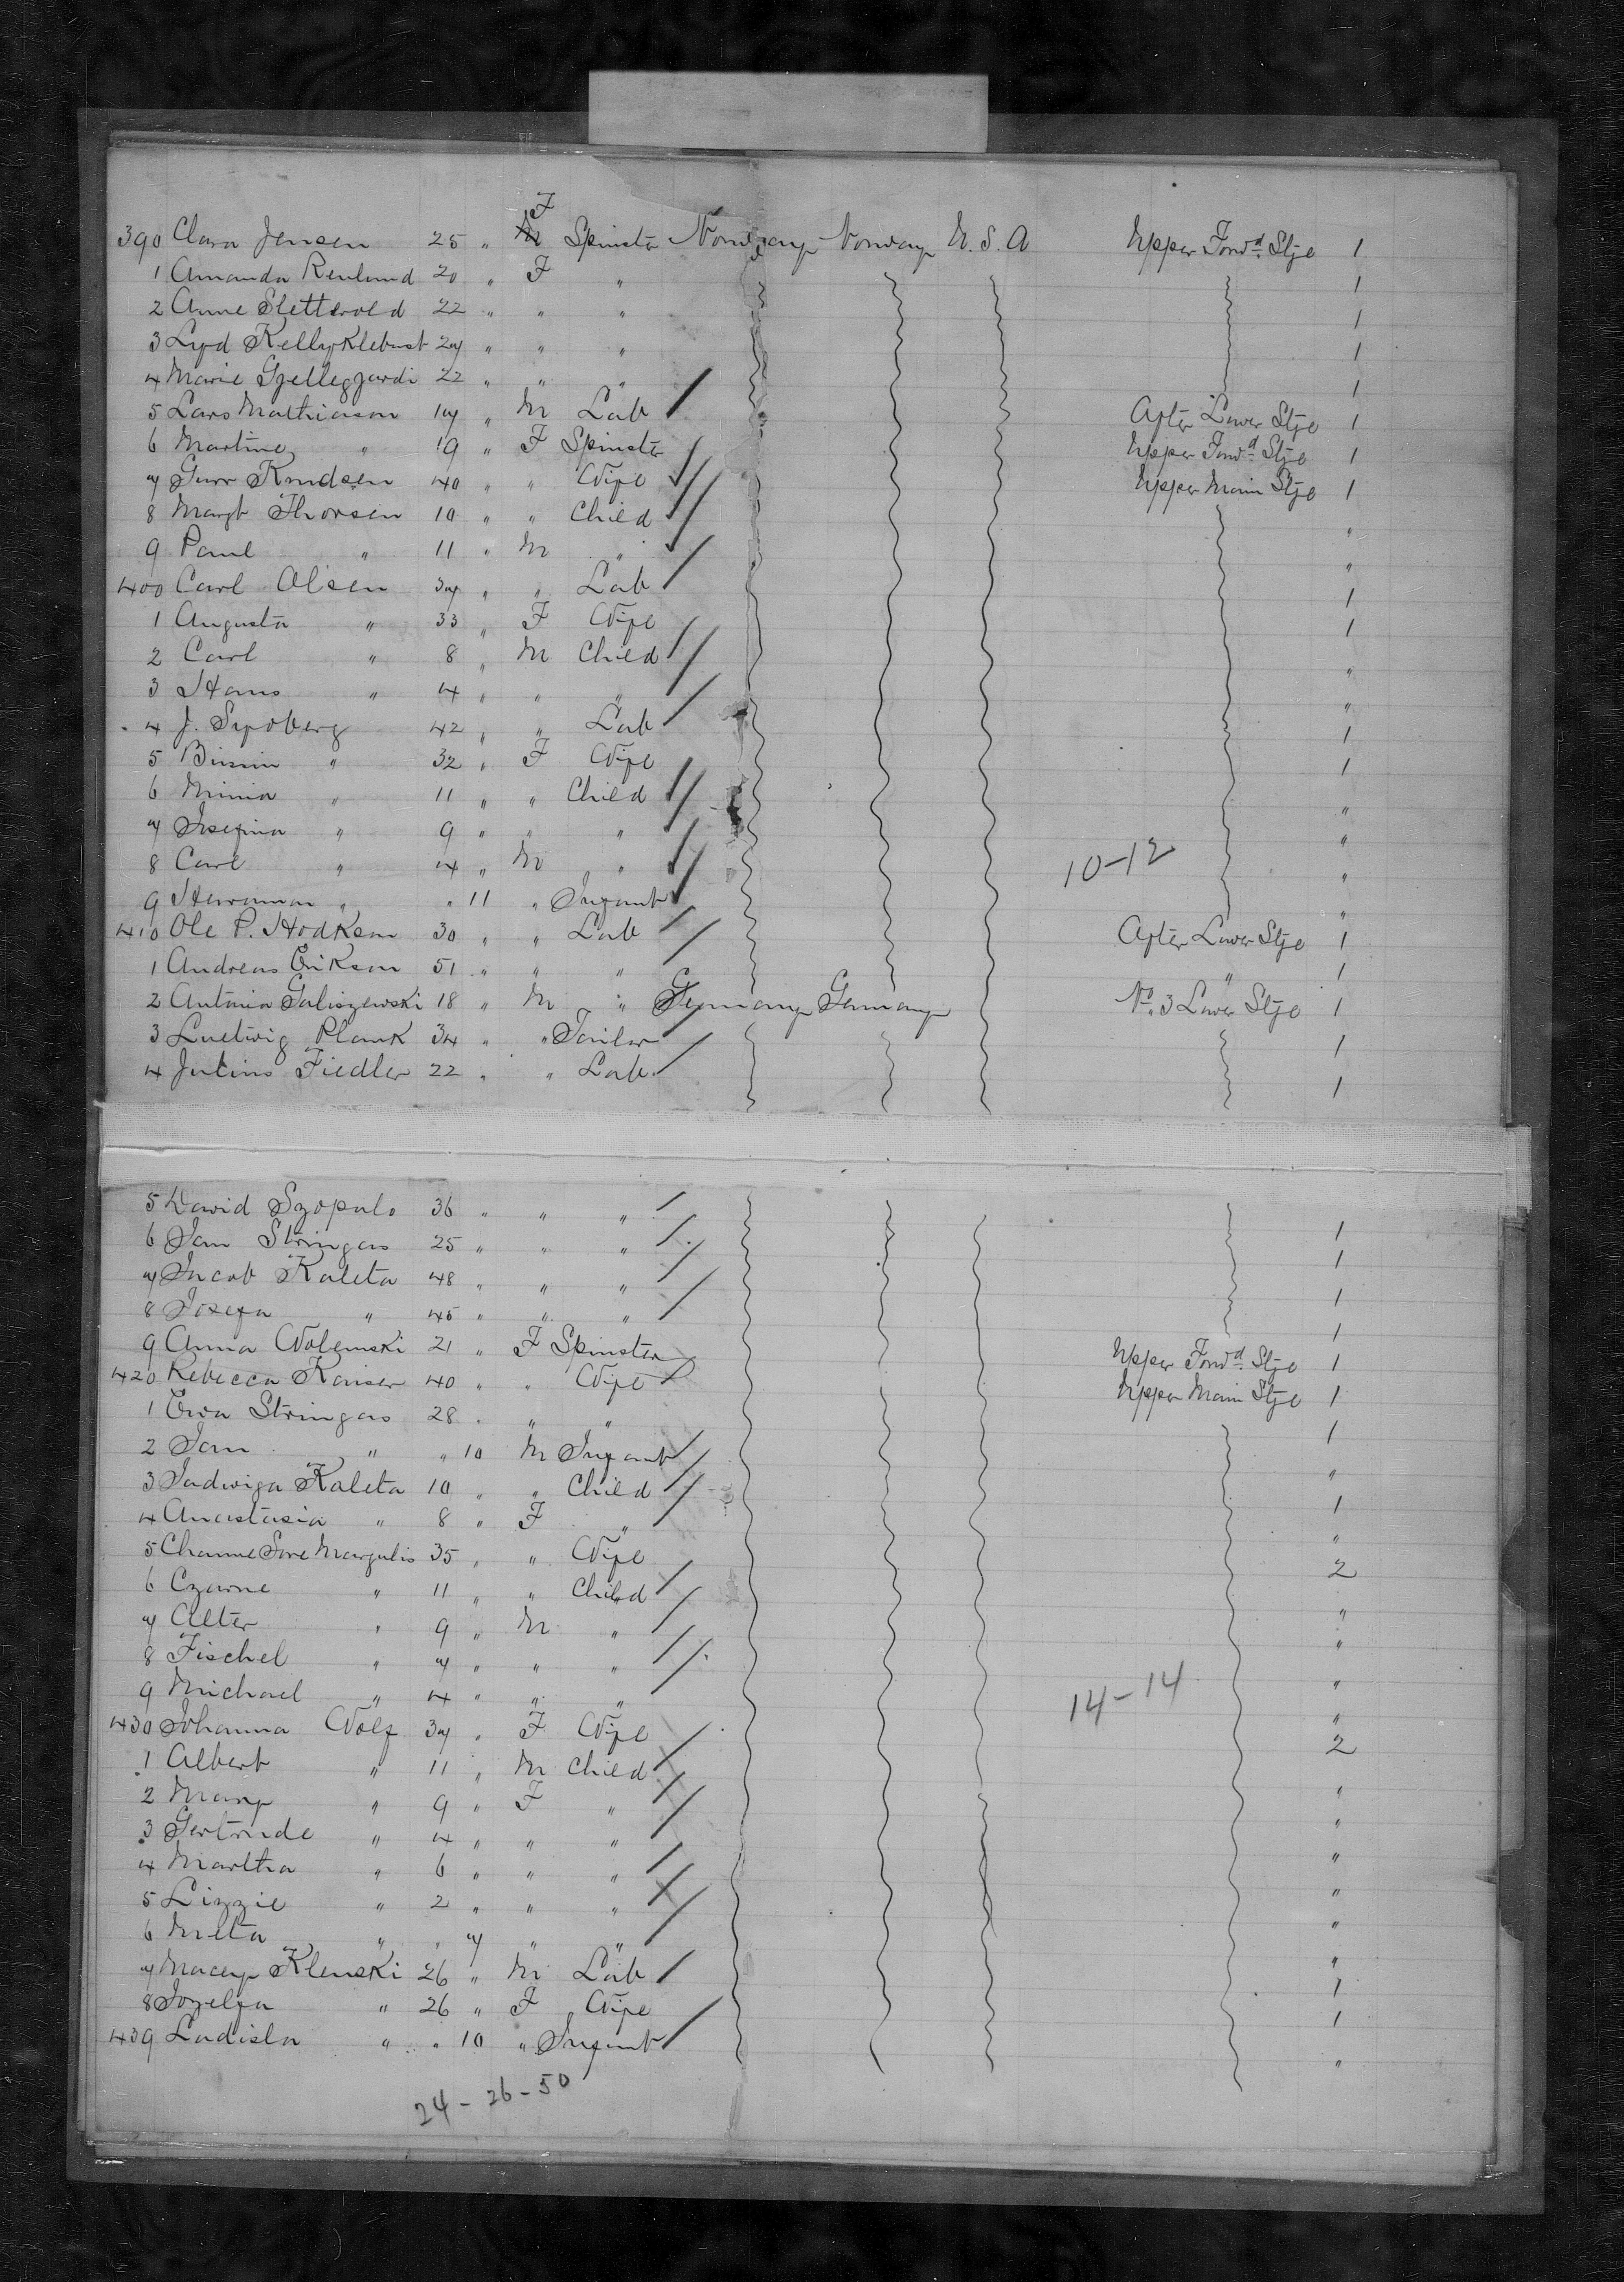 390 Clara Jensen 25 " F Spinster Norway Norway U.S.A Upper Forwd Stge 1
1 Amanda Renlund 20 " F " 1
2 Anne Slettevold 22 " " " 1
3 Lyd Kellyklebust 27 " " " 1
4 Marie Gjelleggjardi 22 " " " 1
5 Lars Mathiason 17 " M Lab After Lower Stge 1
6 Martine " 19 " F Spinster Upper Forwd Stge 1
7 Gurr Knudsen 40 " " Wife Upper Main Stge 1
8 Margt Thorsen 10 " " Child "
9 Paul " 11 " M " "
400 Carl Olsen 37 " " Lab 1
1 Augusta " 33 " F Wife 1
2 Carl " 8 " M Child "
3 Hans " 4 " " " "
4 J. Syoberg 42 " " Lab 1
5 " 32 " F Wife 1
6 Minia " 11 " " Child "
7 Josefina " 9 " " " "
8 Carl " 4 " M " "
10-12
9 Herrman " " 11 " Infant "
410 Ole P. Hodkson 30 " " Lab After Lower Stge 1
1 Andreas Erikson 51 " " " " 1
2 Antonia Galiszewski 18 " M " Germany Germany No. 3 Lower Stge 1
3 Luetwig Plank 34 " " Tailor 1
4 Julius Fiedler 22 " " Lab 1
5 David Szopulo 36 " " " 1
6 Jan Stringas 25 " " " 1
7 Jacob Kaleta 48 " " " 1
8 Josefa " 45 " " " 1
9 Anna Wolemski 21 " F Spinster Upper Forwd Stge 1
420 Rebecca Kaiser 40 " " Wife Upper Main Stge 1
1 Eva Stringas 28 " " " 1
2 Jan " " 10 M Infant "
3 Jadwiga Kaleta 10 " " Child 1
4 Anastasia " 8 " F " "
5 Channe Sore Margulis 35 " " Wife 2
6 Czarne " 11 " " Child "
7 Alter " 9 " M " "
8 Fischel " 7 " " " "
9 Michael " 4 " " " "
14-14
430 Johanna Wolf 37 " F Wife 2
1 Albert " 11 " M Child "
2 Mary " 9 " F " "
3 Gertrude " 4 " " " "
4 Martha " 6 " " " "
5 Lizzie " 2 " " " "
6 Meta " " 7 " " "
7 Macey Klenski 26 " M Lab 1
8 Jozefa " 26 " F Wife 1
439 Ladisla " " 10 " Infant "
24-26-50